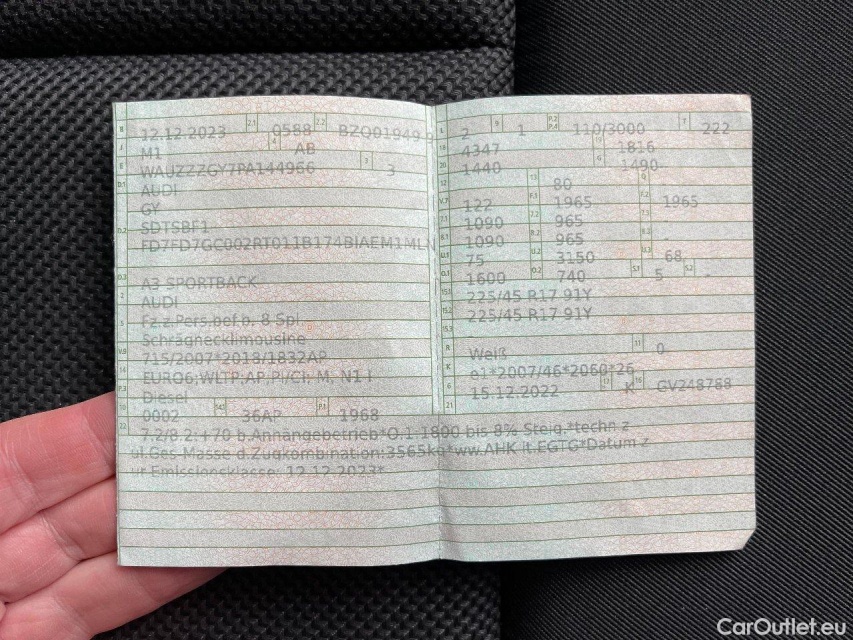 B 12.12.2023 2.1 0588 2.2 BZQ01949
J M1 4 AB
E WAUZZZGY7PA144966 3 3
D.1 AUDI
GY
D.2 SDTSBF1
FD7FD7GC002RT011B174BIAEM1MLN
D.3 A3 SPORTBACK
2 AUDI
5 Fz.z.Pers.bef.b. 8 Spl
Schräghecklimousine
V.9 715/2007*2018/1832AP
14 EURO6;WLTP;AP,PI/CI; M, N1 I
P.3 Diesel
10 0002 14.1 36AP P.1 1968
L 2 9 1 P.2 P.4 110/3000 T 222
18 4347 19 1816
20 1440 G 1490
12 13 80 Q
V.7 122 F.1 1965 F.2 1965
7.1 1090 7.2 965 7.3
8.1 1090 8.2 965 8.3
U.1 75 U.2 3150 U.3 68
O.1 1600 O.2 740 S.1 5 S.2 -
15.1 225/45 R17 91Y
15.2 225/45 R17 91Y
15.3
R Weiß 11 0
K e1*2007/46*2060*26
6 15.12.2022 17 K 16 GV248788
21
22 7.2/8.2:+70 b.Anhängebetrieb*O.1:1800 bis 8% Steig.*techn.z
ul.Ges.Masse d.Zugkombination:3565kg*ww.AHK lt.EGTG*Datum z
ur Emissionsklasse: 12.12.2023*
CarOutlet.eu